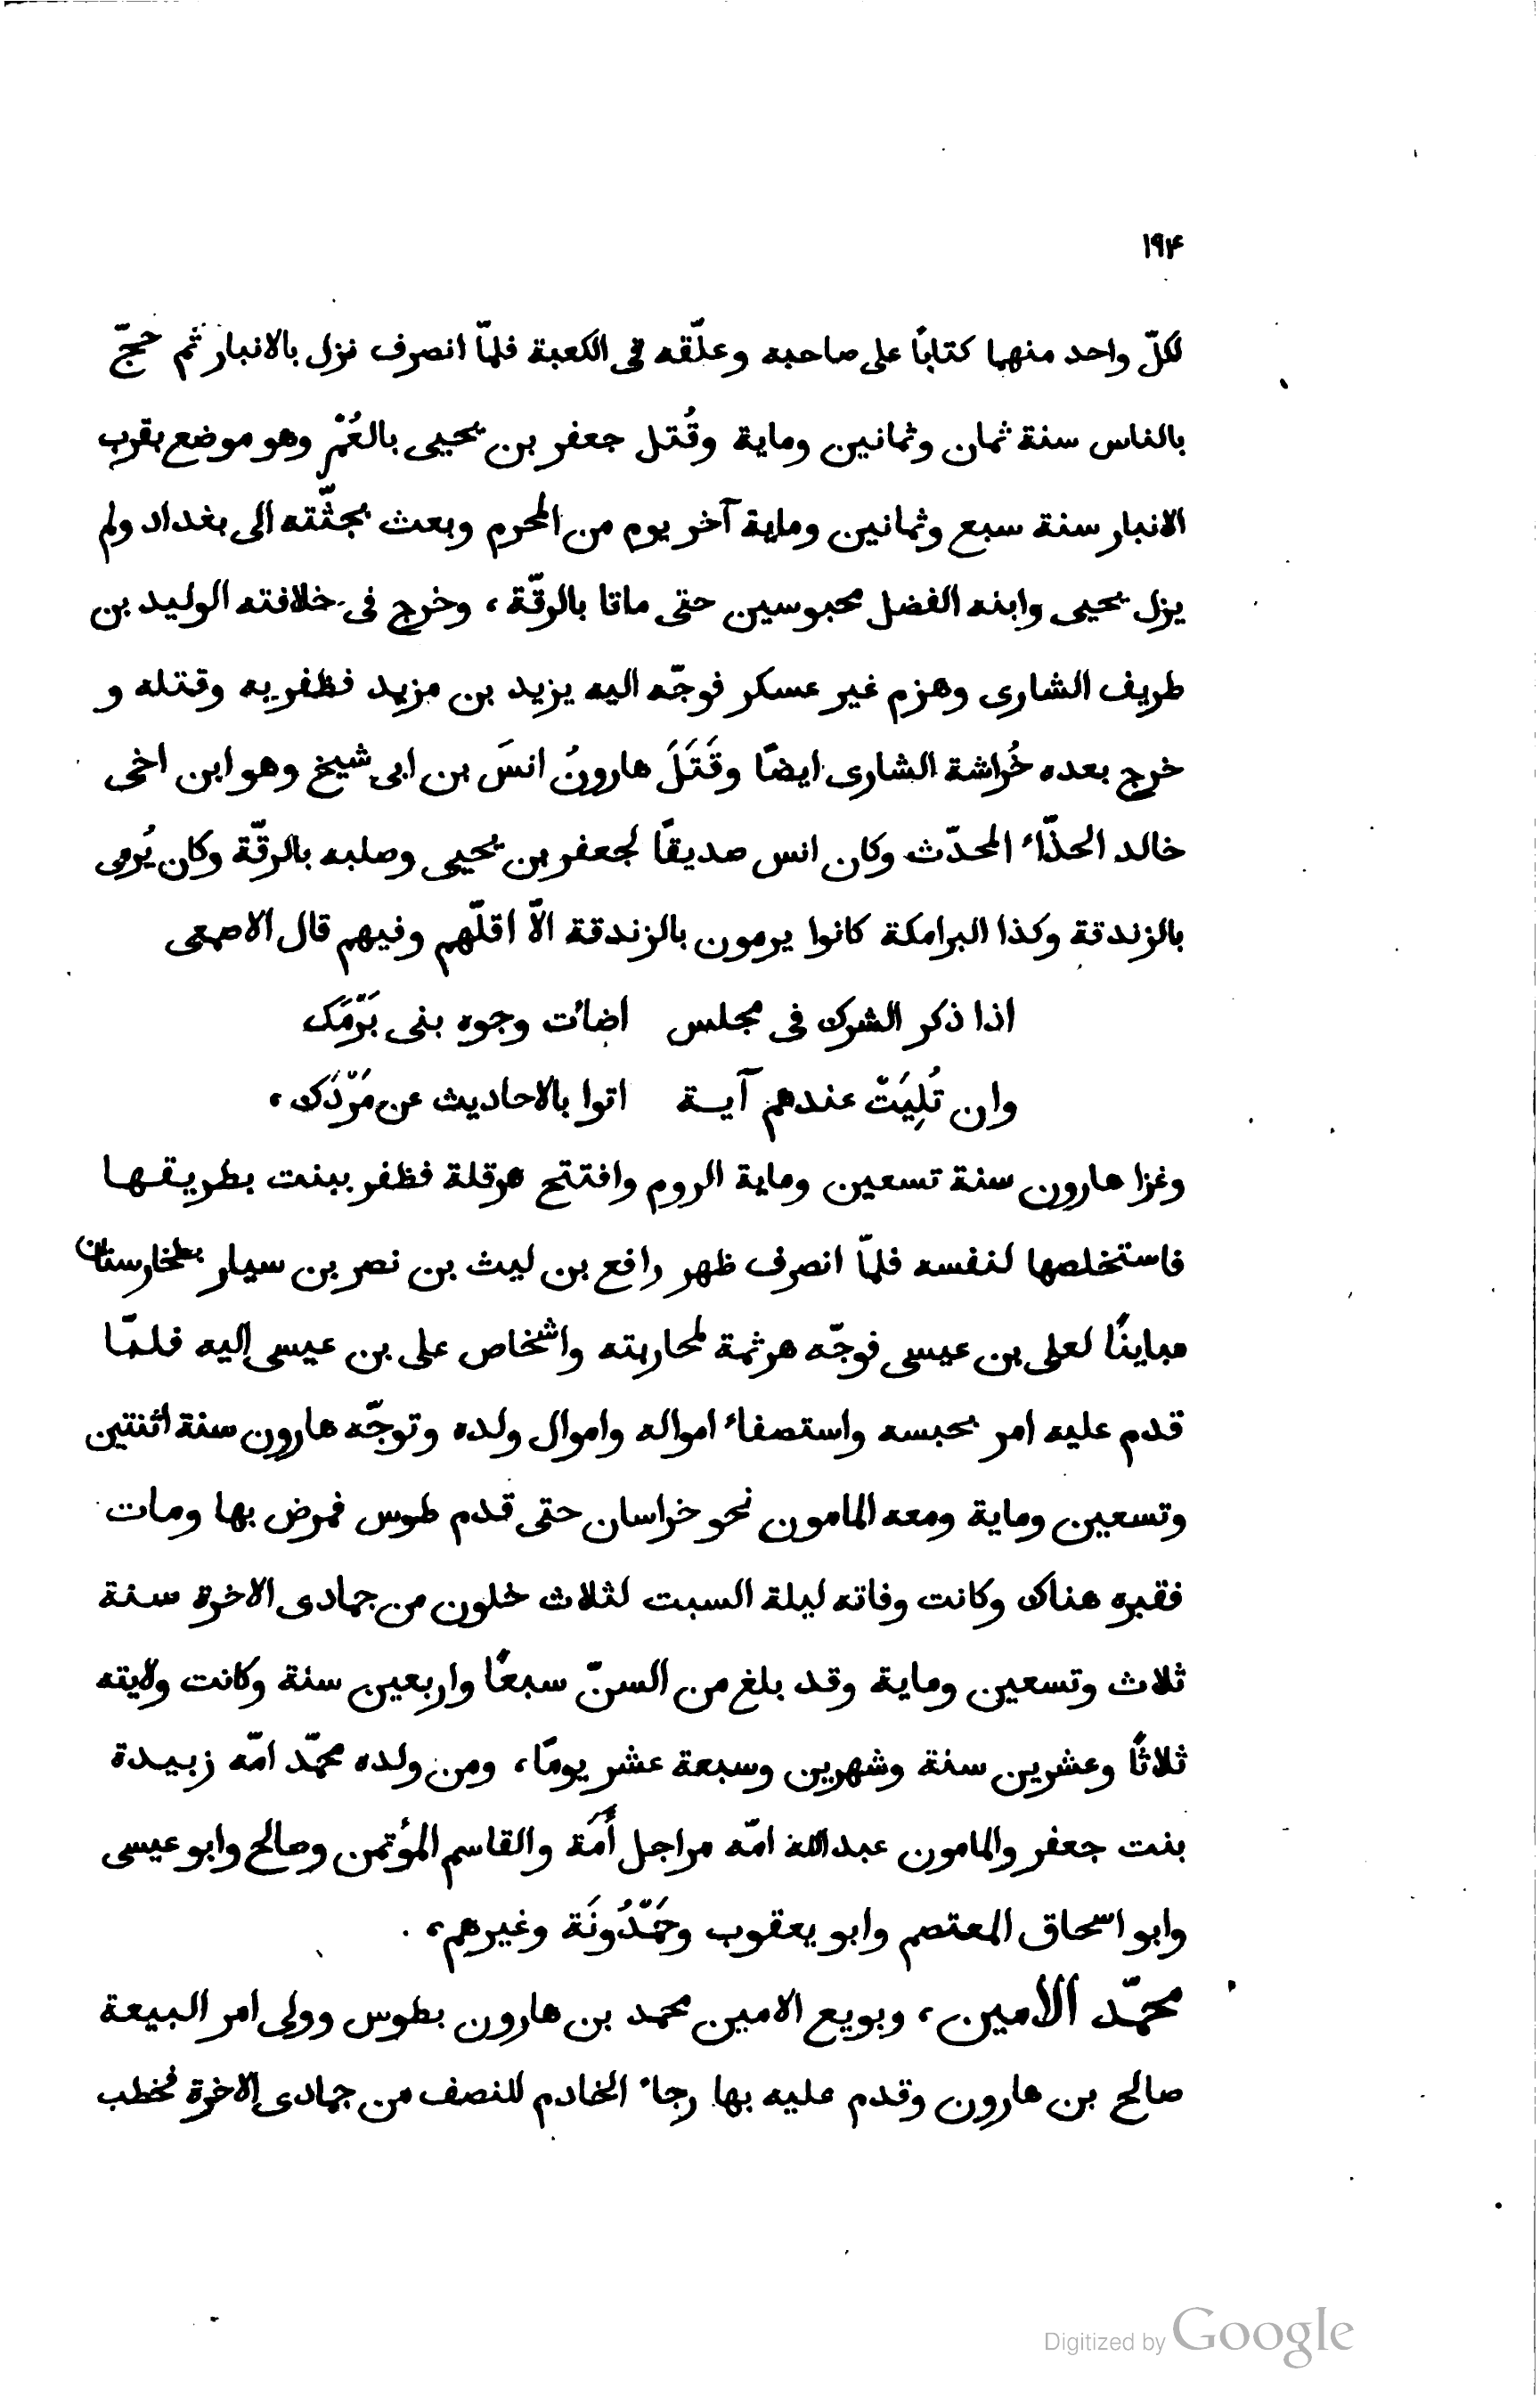 ١٩۴
لكلّ واحد منهما كتابًا على صاحبه وعلّقه فى الكعبة فلمّا انصرف نزل بالانبار ثم حجّ
بالناس سنة ثمان وثمانين وماية وقُتل جعفر بن يحيى بالعُمْر وهو موضع بقرب
الانبار سنة سبع وثمانين وماية آخر يوم من المحرم وبعث بجثّته الى بغداد ولم
يزل يحيى وابنه الفضل محبوسين حتى ماتا بالرقّة، وخرج فى خلافته الوليد بن
طريف الشارى وهزم غير عسكر فوجّه اليه يزيد بن مزيد فظفر به وقتله و
خرج بعده خُراشة الشارى ايضًا وقَتَلَ هارونُ انسَ بن ابى شيخ وهو ابن اخى
خالد الحذّاء المحدّث وكان انس صديقًا لجعفر بن يحيى وصلبه بالرقّة وكان يُرمى
بالزندقة وكذا البرامكة كانوا يرمون بالزندقة الّا اقلّهم وفيهم قال الاصمعى
اذا ذكر الشرك فى مجلس اضائت وجوه بنى بَرْمَك
وان تُلِيَتْ عندهم آيـة اتوا بالاحاديث عن مَزْدَك،
وغزا هارون سنة تسعين وماية الروم وافتتح هرقلة فظفر ببنت بطريقها
فاستخلصها لنفسه فلمّا انصرف ظهر رافع بن ليث بن نصر بن سيار بطخارستان
مباينًا لعلى بن عيسى فوجّه هرثمة لمحاربته واشخاص على بن عيسى اليه فلمّا
قدم عليه امر بحبسه واستصفاء امواله واموال ولده وتوجّه هارون سنة اثنتين
وتسعين وماية ومعه المامون نحو خراسان حتى قدم طوس فمرض بها ومات
فقبره هناك وكانت وفاته ليلة السبت لثلاث خلون من جمادى الاخرة سنة
ثلاث وتسعين وماية وقد بلغ من السنّ سبعًا واربعين سنة وكانت ولايته
ثلاثًا وعشرين سنة وشهرين وسبعة عشر يومًا، ومن ولده محمّد امّه زبيدة
بنت جعفر والمامون عبد الله امّه مراجل أَمَة والقاسم المؤتمن وصالح وابو عيسى
وابو اسحاق المعتصم وابو يعقوب وحَمْدُونَة وغيرهم،
محمّد الامين، وبويع الامين محمد بن هارون بطوس وولى امر البيعة
صالح بن هارون وقدم عليه بها رجاء الخادم للنصف من جمادى الاخرة فخطب
Digitized by Google